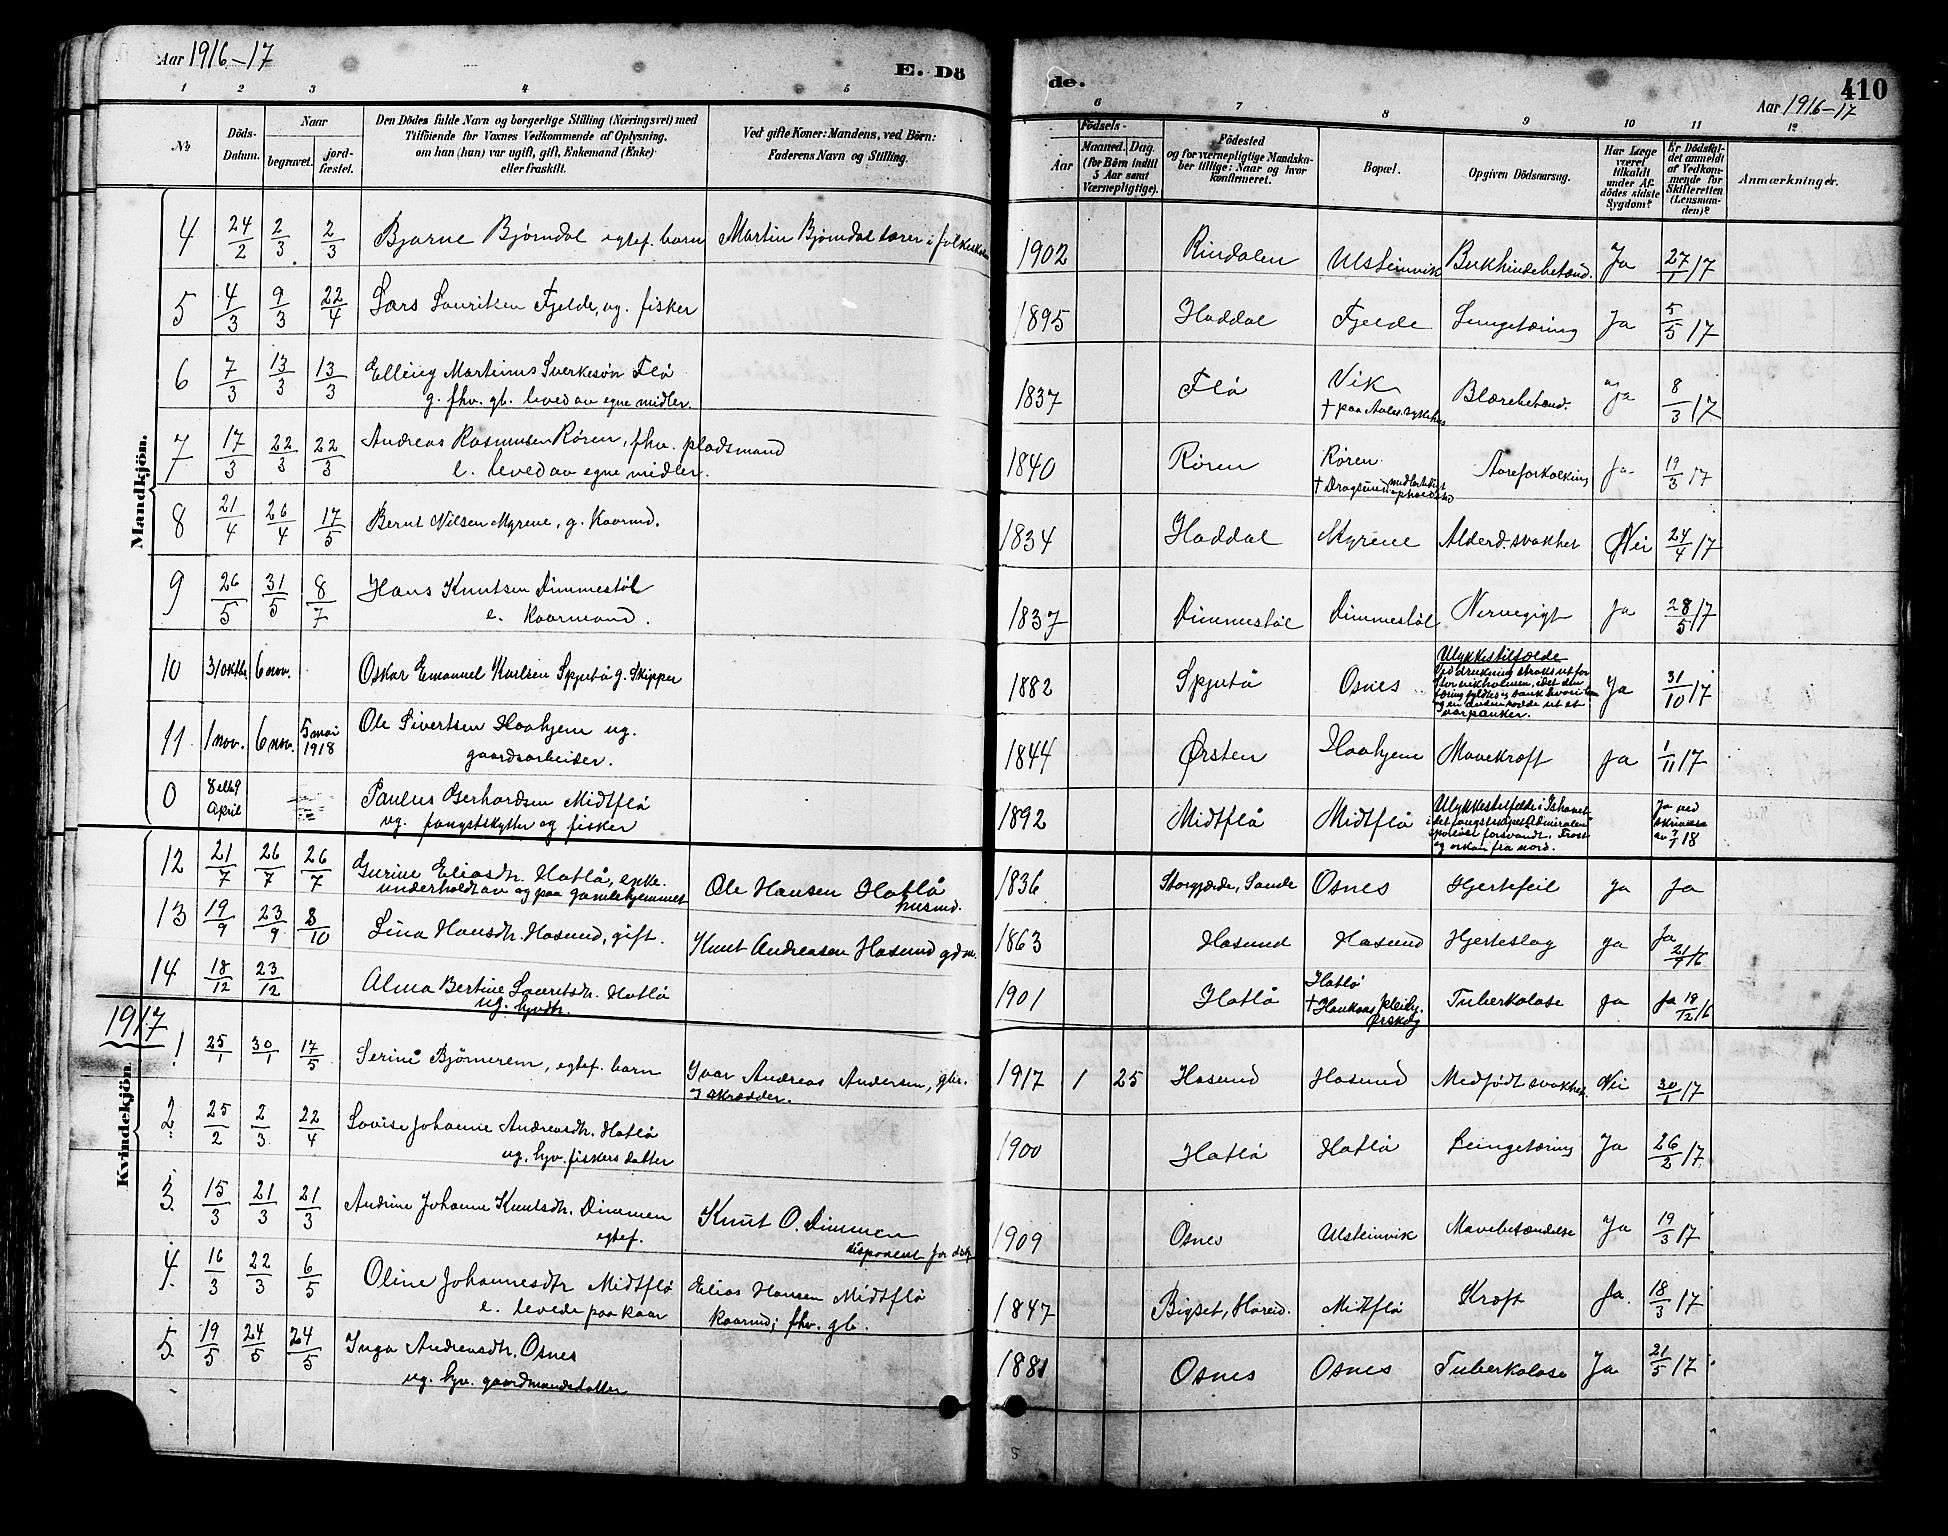 Aar 1916-17
E. Dö
de.
410
Aar 1916-17
1 2 3 4 5
6 7 8 9 10 11 12
No
Döds-Datum.
Naar
begravet.
jord-fæstet.
Den Dödes fulde Navn og borgerlige Stilling (Næringsvei) med
Tilföiende for Voxnes Vedkommende af Oplysning,
om han (hun) var ugift, gift, Enkemand (Enke)
eller fraskilt.
Ved gifte Koner: Mandens, ved Börn:
Faderens Navn og Stilling.
Födsels-
Aar
Maaned. Dag.
(for Börn indtil
3 Aar samt
Værnepligtige).
Födested
og for værnepligtige Mandska-
ber tillige: Naar og hvor
konfirmeret.
Bopæl.
Opgiven Dödsaarsag.
Har Læge
været
tilkaldt
under Af-
dödes sidste
Sygdom?
Er Dödsfal-
det anmeldt
af Vedkom-
mende for
Skifteretten
(Lensman-
den)?
Anmærkninger.
Mandkjön.
4 24/2 2/3 2/3 Bjarne Bjørndal egtef. barn Martin Bjørndal lærer i folkeskolen 1902 Rindalen Ulsteinvik Bukhindebetænd. Ja 27/17
5 4/3 9/3 22/4 Lars Lauritsen Fjelde, ug. fisker 1895 Haddal Fjelde Lungetæring Ja 5/5 17
6 7/3 13/3 13/3 Elling Martinus Sverkesøn Flø
g. fhv. gb. leved av egne midler. 1837 Flø Vik
† paa Aales. sykehus Blærebetænd. Ja 8/3 17
7 17/3 22/3 22/3 Andreas Rasmussen Røren, fhv. pladsmand
e. leved av egne midler. 1840 Røren Røren
† Dragsund Aareforkalkning Ja 19/3 17
8 21/4 26/4 17/5 Bernt Nilsen Myrene, g. Kaarmd. 1834 Haddal Myrene Alderd. svakhet Nei 24/4 17
9 26/5 31/5 8/7 Hans Knutsen Dimmestøl
e. Kaarmand. 1837 Dimmestøl Dimmestøl Nervegigt Ja 28/5 17
10 31 oktbr. 6 nov. Oskar Emanuel Karlsen Spjutø g. Skipper 1882 Spjutø Osnes Ulykkestilfælde
Ved drukning straks ut for
Ja 31/10 17
11 1 nov. 6 nov. 5 mai 1918 Ole Sivertsen Haahjem ug.
gaardsarbeider. 1844 Ørsten Haahjem Mavekræft Ja 1/11 17
0 8 el. 9 April Paulus Gerhardsen Midtflø
ug. fangstskytter og fisker 1892 Midtflø Midtflø Ulykkestilfælde i Ishavet
idet fangstskøiten "Admiralen"
sporløst forsvandt. Frost
og orkan fra nord. Ja ved
skrivelse
av 18
12 21/7 26/7 26/7 Gurine Eliasdtr. Hatlø, enke.
underholdt av og paa gamlehjemmet Ole Hansen Hatlø
husmd. 1836 Storgjerde, Sande Osnes Hjertefeil ja ja
13 19/9 23/9 8/10 Lina Hansdtr. Hasund, gift. Knut Andreasen Hasund gdm. 1863 Hasund Hasund Hjerteslag ja Ja 21/9 16
14 18/12 23/12 Alma Bertine Lauritsdtr. Hatlø
ug. hvdtr. 1901 Hatlø Hatlø
† Haukaas pleiehj.
Ørskog Tuberkulose ja ja 19/12 16
1917
Kvindekjön.
1 25/1 30/1 17/5 Serine Bjørnerem, egtef. barn Ivar Andreas Andersen, gbr.
skrædder. 1917 1 25 Hasund Hasund Medfødt svakhet. Nei 30/1 17
2 25/2 2/3 22/4 Lovise Johanne Andreasdtr. Hatlø
ug. hjv. fiskers datter 1900 Hatlø Hatlø Lungetæring Ja 26/2 17
3 15/3 21/3 21/3 Andrine Johanne Knutsdtr. Dimmen
egtef. Knut O. Dimmen
disponent for 1909 Osnes Ulsteinvik Mavebetændelse Ja 19/3 17
4 16/3 22/3 6/5 Oline Johannesdtr Midtflø
e. levede paa kaar Elias Hansen Midtflø
kaarmd; fhv. gb. 1847 Bigset, Hareid. Midtflø Kræft Ja. 18/3 17
5 19/5 24/5 24/5 Inga Andreasdtr. Osnes
ug. hjv. gaardmandsdatter 1881 Osnes Osnes Tuberkulose Ja 21/5 17